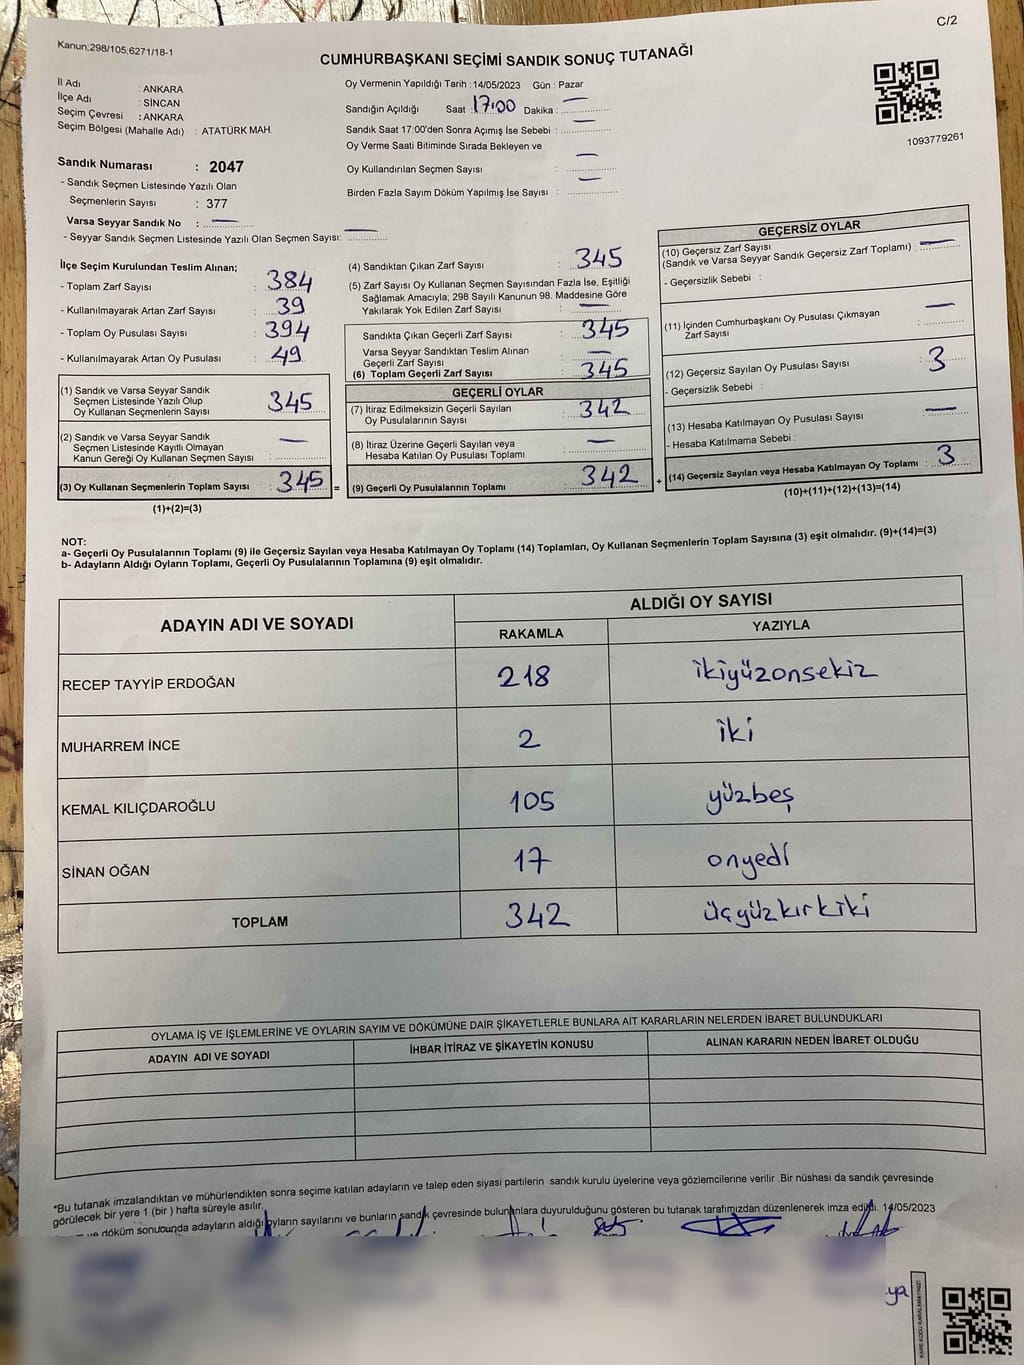 C/2
Kanun;298/105;6271/18-1
CUMHURBAŞKANI SEÇİMİ SANDIK SONUÇ TUTANAĞI
İl Adı : ANKARA
İlçe Adı : SİNCAN
Seçim Çevresi : ANKARA
Seçim Bölgesi (Mahalle Adı) : ATATÜRK MAH.
Sandık Numarası : 2047
- Sandık Seçmen Listesinde Yazılı Olan
Seçmenlerin Sayısı : 377
Varsa Seyyar Sandık No : —
- Seyyar Sandık Seçmen Listesinde Yazılı Olan Seçmen Sayısı: —
Oy Vermenin Yapıldığı Tarih : 14/05/2023 Gün : Pazar
Sandığın Açıldığı Saat : 17:00 Dakika : —
Sandık Saat 17:00'den Sonra Açımış İse Sebebi : —
Oy Verme Saati Bitiminde Sırada Bekleyen ve
Oy Kullandırılan Seçmen Sayısı : —
Birden Fazla Sayım Döküm Yapılmış İse Sayısı : —
1093779261
İlçe Seçim Kurulundan Teslim Alınan;
- Toplam Zarf Sayısı : 384
- Kullanılmayarak Artan Zarf Sayısı : 39
- Toplam Oy Pusulası Sayısı : 394
- Kullanılmayarak Artan Oy Pusulası : 49
(1) Sandık ve Varsa Seyyar Sandık
Seçmen Listesinde Yazılı Olup
Oy Kullanan Seçmenlerin Sayısı : 345
(2) Sandık ve Varsa Seyyar Sandık
Seçmen Listesinde Kayıtlı Olmayan
Kanun Gereği Oy Kullanan Seçmen Sayısı : —
(3) Oy Kullanan Seçmenlerin Toplam Sayısı : 345 =
(1)+(2)=(3)
(4) Sandıktan Çıkan Zarf Sayısı : 345
(5) Zarf Sayısı Oy Kullanan Seçmen Sayısından Fazla İse, Eşitliği
Sağlamak Amacıyla; 298 Sayılı Kanunun 98. Maddesine Göre
Yakılarak Yok Edilen Zarf Sayısı : —
Sandıkta Çıkan Geçerli Zarf Sayısı : 345
Varsa Seyyar Sandıktan Teslim Alınan
Geçerli Zarf Sayısı : —
(6) Toplam Geçerli Zarf Sayısı : 345
GEÇERLİ OYLAR
(7) İtiraz Edilmeksizin Geçerli Sayılan
Oy Pusulalarının Sayısı : 342
(8) İtiraz Üzerine Geçerli Sayılan veya
Hesaba Katılan Oy Pusulası Toplamı : —
(9) Geçerli Oy Pusulalarının Toplamı : 342 +
GEÇERSİZ OYLAR
(10) Geçersiz Zarf Sayısı
(Sandık ve Varsa Seyyar Sandık Geçersiz Zarf Toplamı) : —
- Geçersizlik Sebebi :
(11) İçinden Cumhurbaşkanı Oy Pusulası Çıkmayan
Zarf Sayısı : —
(12) Geçersiz Sayılan Oy Pusulası Sayısı : 3
- Geçersizlik Sebebi :
(13) Hesaba Katılmayan Oy Pusulası Sayısı : —
- Hesaba Katılmama Sebebi :
(14) Geçersiz Sayılan veya Hesaba Katılmayan Oy Toplamı : 3
(10)+(11)+(12)+(13)=(14)
NOT:
a- Geçerli Oy Pusulalarının Toplamı (9) ile Geçersiz Sayılan veya Hesaba Katılmayan Oy Toplamı (14) Toplamları, Oy Kullanan Seçmenlerin Toplam Sayısına (3) eşit olmalıdır. (9)+(14)=(3)
b- Adayların Aldığı Oyların Toplamı, Geçerli Oy Pusulalarının Toplamına (9) eşit olmalıdır.
ADAYIN ADI VE SOYADI
ALDIĞI OY SAYISI
RAKAMLA YAZIYLA
RECEP TAYYİP ERDOĞAN 218 ikiyüzonsekiz
MUHARREM İNCE 2 iki
KEMAL KILIÇDAROĞLU 105 yüzbeş
SİNAN OĞAN 17 onyedi
TOPLAM 342 üçyüzkırkiki
OYLAMA İŞ VE İŞLEMLERİNE VE OYLARIN SAYIM VE DÖKÜMÜNE DAİR ŞİKAYETLERLE BUNLARA AİT KARARLARIN NELERDEN İBARET BULUNDUKLARI
ADAYIN ADI VE SOYADI İHBAR İTİRAZ VE ŞİKAYETİN KONUSU ALINAN KARARIN NEDEN İBARET OLDUĞU
*Bu tutanak imzalandıktan ve mühürlendikten sonra seçime katılan adayların ve talep eden siyasi partilerin sandık kurulu üyelerine veya gözlemcilerine verilir .Bir nüshası da sandık çevresinde
görülecek bir yere 1 (bir ) hafta süreyle asılır.
ve döküm sonucunda adayların aldığı oyların sayılarını ve bunların sandık çevresinde bulunanlara duyurulduğunu gösteren bu tutanak tarafımızdan düzenlenerek imza edildi. 14/05/2023
ya